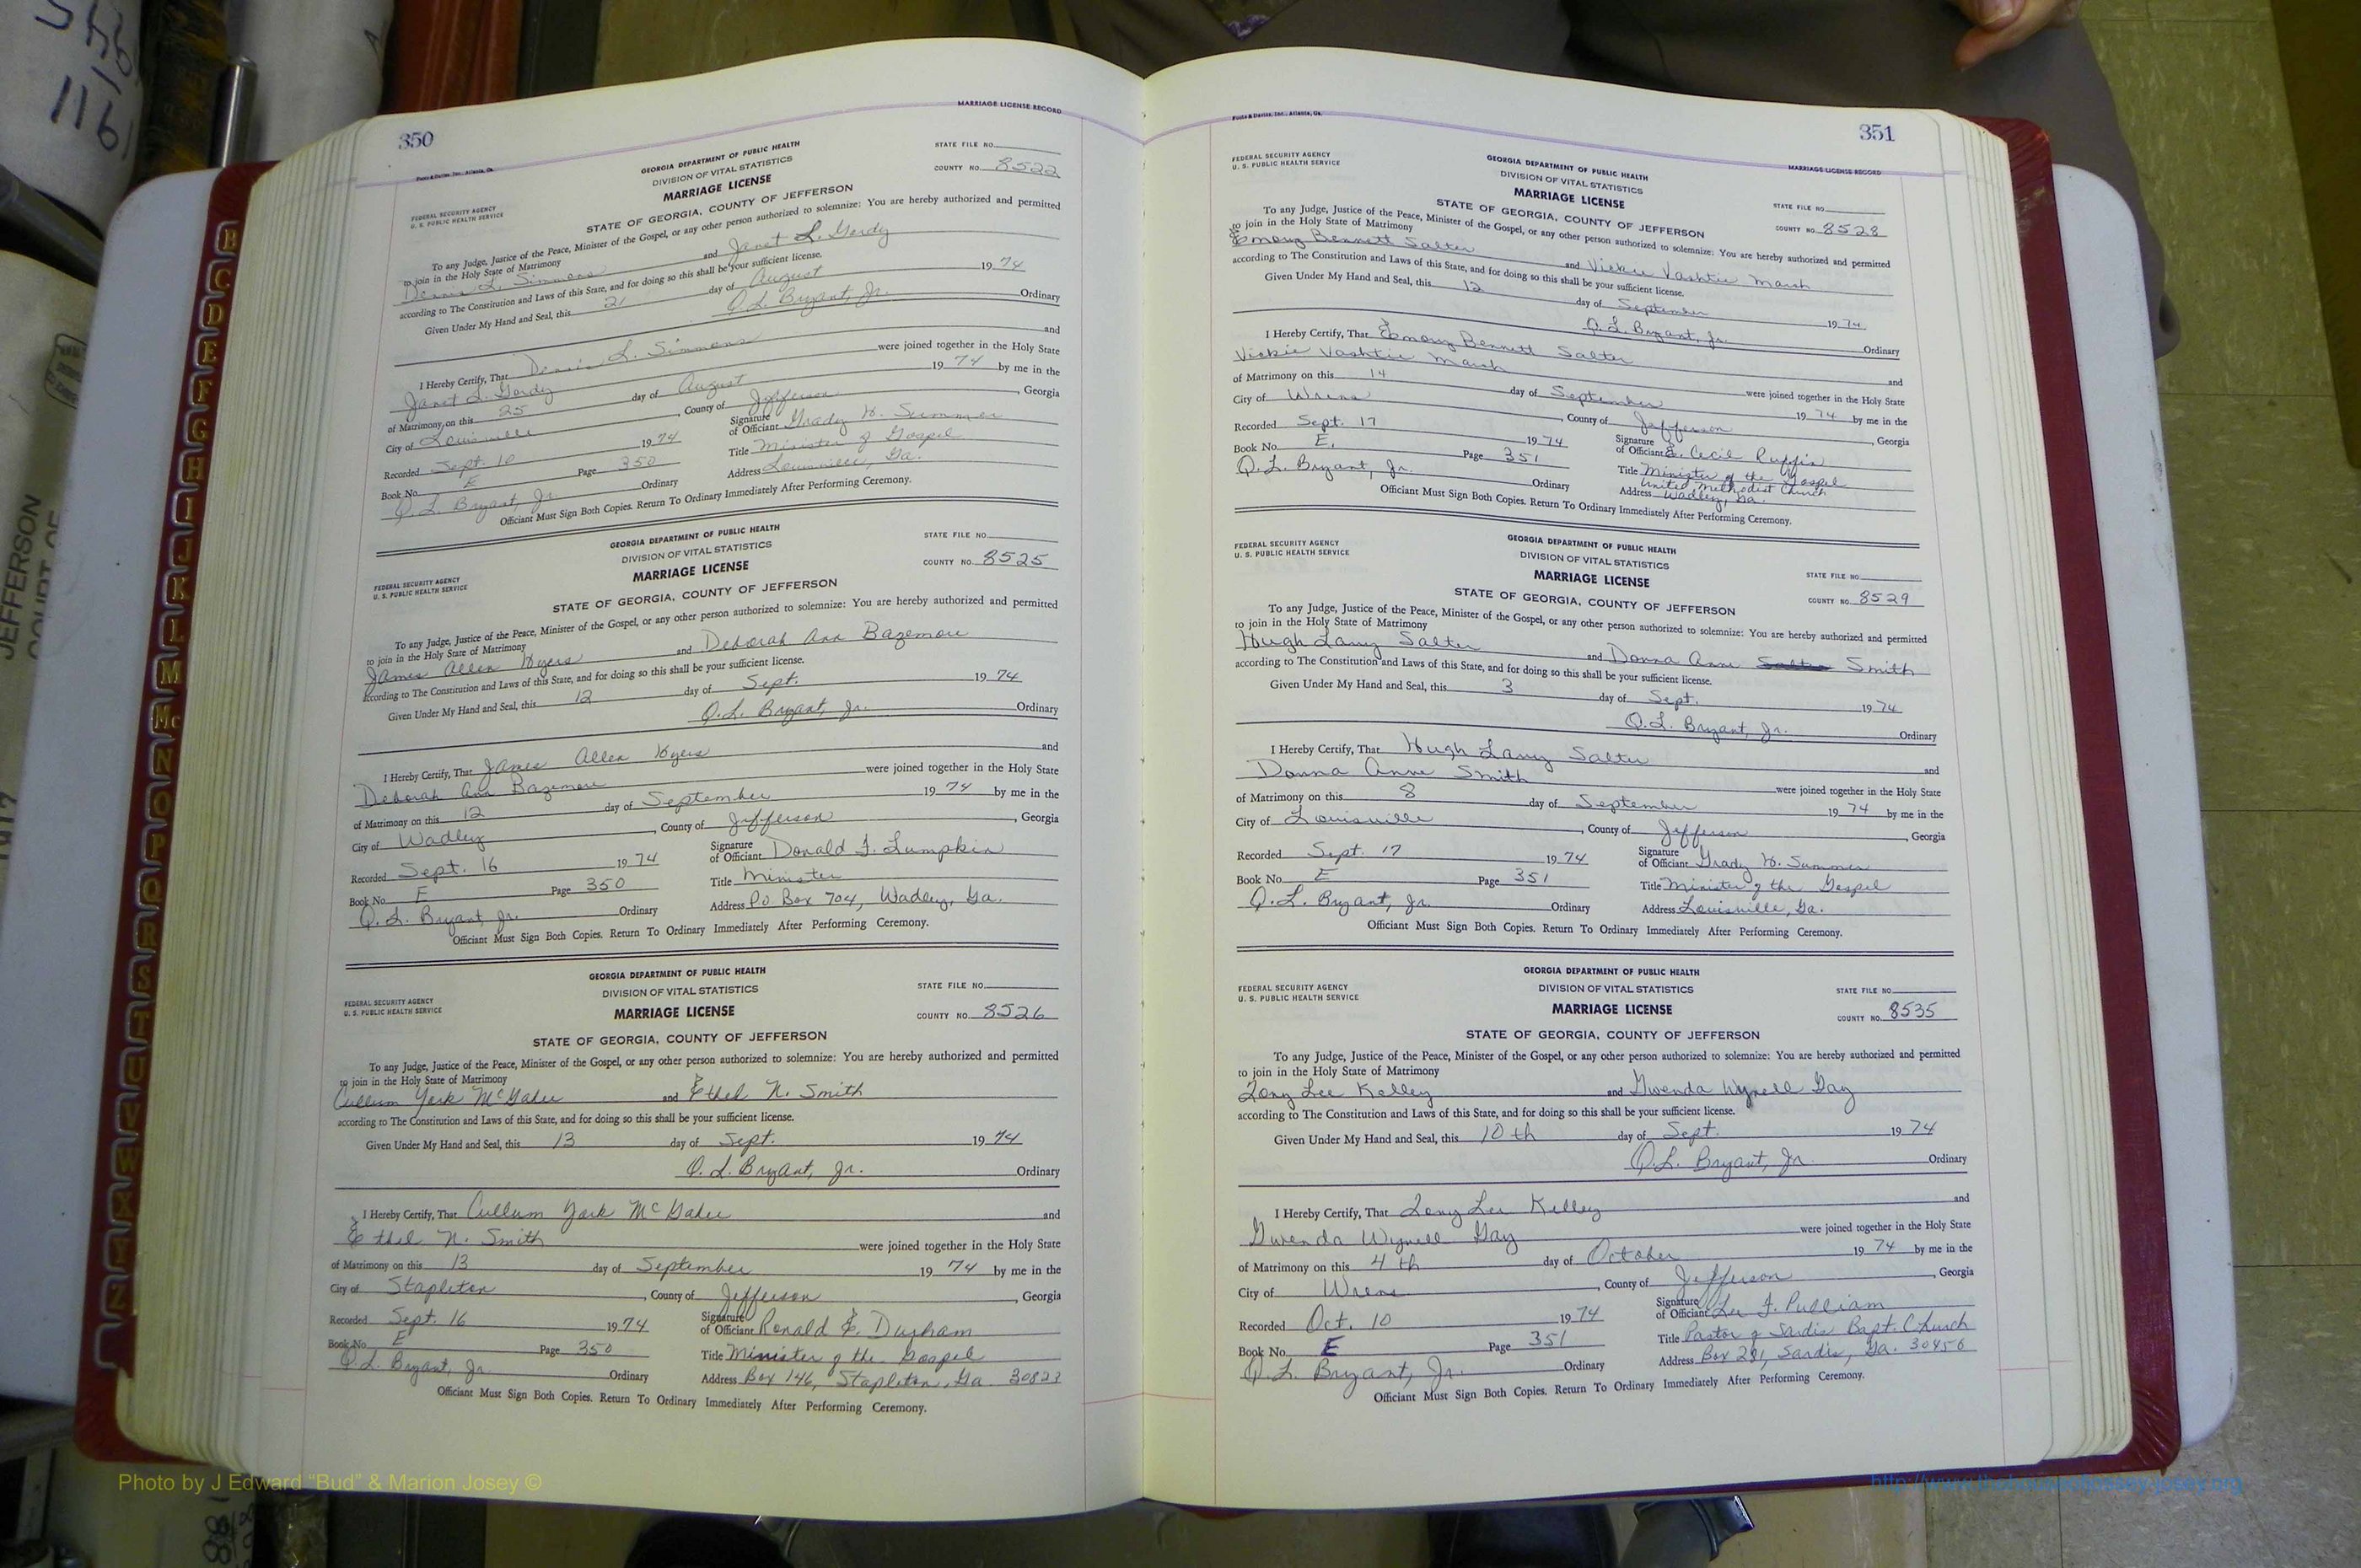 350
MARRIAGE LICENSE RECORD
Foote & Davies, Inc., Atlanta, Ga.
GEORGIA DEPARTMENT OF PUBLIC HEALTH
DIVISION OF VITAL STATISTICS
MARRIAGE LICENSE
STATE FILE NO.
COUNTY NO. 8522
FEDERAL SECURITY AGENCY
U. S. PUBLIC HEALTH SERVICE
STATE OF GEORGIA, COUNTY OF JEFFERSON
To any Judge, Justice of the Peace, Minister of the Gospel, or any other person authorized to solemnize: You are hereby authorized and permitted
to join in the Holy State of Matrimony
Dennis L. Simmons and Janet L. Gordy
according to The Constitution and Laws of this State, and for doing so this shall be your sufficient license.
Given Under My Hand and Seal, this 21 day of August 1974
Q. L. Bryant, Jr. Ordinary
I Hereby Certify, That Dennis L. Simmons and
Janet L. Gordy were joined together in the Holy State
of Matrimony on this 25 day of August 1974 by me in the
City of Louisville, County of Jefferson, Georgia
Recorded Sept. 10 1974
Signature of Officiant Grady H. Summer
Book No. E Page 350
Title Minister of Gospel
Q. L. Bryant, Jr. Ordinary
Address Louisville, Ga.
Officiant Must Sign Both Copies. Return To Ordinary Immediately After Performing Ceremony.
GEORGIA DEPARTMENT OF PUBLIC HEALTH
DIVISION OF VITAL STATISTICS
MARRIAGE LICENSE
STATE FILE NO.
COUNTY NO. 8525
FEDERAL SECURITY AGENCY
U. S. PUBLIC HEALTH SERVICE
STATE OF GEORGIA, COUNTY OF JEFFERSON
To any Judge, Justice of the Peace, Minister of the Gospel, or any other person authorized to solemnize: You are hereby authorized and permitted
to join in the Holy State of Matrimony
James Allen Hyers and Deborah Ann Bazemore
according to The Constitution and Laws of this State, and for doing so this shall be your sufficient license.
Given Under My Hand and Seal, this 12 day of Sept. 1974
Q. L. Bryant, Jr. Ordinary
I Hereby Certify, That James Allen Hyers and
Deborah Ann Bazemore were joined together in the Holy State
of Matrimony on this 12 day of September 1974 by me in the
City of Wadley, County of Jefferson, Georgia
Recorded Sept. 16 1974
Signature of Officiant Donald F. Lumpkin
Book No. E Page 350
Title Minister
Q. L. Bryant, Jr. Ordinary
Address P.O. Box 704, Wadley, Ga.
Officiant Must Sign Both Copies. Return To Ordinary Immediately After Performing Ceremony.
GEORGIA DEPARTMENT OF PUBLIC HEALTH
DIVISION OF VITAL STATISTICS
MARRIAGE LICENSE
STATE FILE NO.
COUNTY NO. 8526
FEDERAL SECURITY AGENCY
U. S. PUBLIC HEALTH SERVICE
STATE OF GEORGIA, COUNTY OF JEFFERSON
To any Judge, Justice of the Peace, Minister of the Gospel, or any other person authorized to solemnize: You are hereby authorized and permitted
to join in the Holy State of Matrimony
Cullum York McGahee and Ethel N. Smith
according to The Constitution and Laws of this State, and for doing so this shall be your sufficient license.
Given Under My Hand and Seal, this 13 day of Sept. 1974
Q. L. Bryant, Jr. Ordinary
I Hereby Certify, That Cullum York McGahee and
Ethel N. Smith were joined together in the Holy State
of Matrimony on this 13 day of September 1974 by me in the
City of Stapleton, County of Jefferson, Georgia
Recorded Sept. 16 1974
Signature of Officiant Ronald E. Durham
Book No. E Page 350
Title Minister of the Gospel
Q. L. Bryant, Jr. Ordinary
Address Box 146, Stapleton, Ga 30823
Officiant Must Sign Both Copies. Return To Ordinary Immediately After Performing Ceremony.
351
Foote & Davies, Inc., Atlanta, Ga.
MARRIAGE LICENSE RECORD
FEDERAL SECURITY AGENCY
U. S. PUBLIC HEALTH SERVICE
GEORGIA DEPARTMENT OF PUBLIC HEALTH
DIVISION OF VITAL STATISTICS
MARRIAGE LICENSE
STATE OF GEORGIA, COUNTY OF JEFFERSON
STATE FILE NO.
COUNTY NO. 8528
To any Judge, Justice of the Peace, Minister of the Gospel, or any other person authorized to solemnize: You are hereby authorized and permitted
to join in the Holy State of Matrimony
Emory Bennett Salter and Vickie Vashtie Marsh
according to The Constitution and Laws of this State, and for doing so this shall be your sufficient license.
Given Under My Hand and Seal, this 12 day of September 1974
Q. L. Bryant, Jr. Ordinary
I Hereby Certify, That Emory Bennett Salter and
Vickie Vashtie Marsh were joined together in the Holy State
of Matrimony on this 14 day of September 1974 by me in the
City of Wrens, County of Jefferson, Georgia
Recorded Sept. 17 1974
Signature of Officiant E. Cecil Ruffin
Book No. E. Page 351
Title Minister of the Gospel
United Methodist Church
Q. L. Bryant, Jr. Ordinary
Address Wadley, Ga.
Officiant Must Sign Both Copies. Return To Ordinary Immediately After Performing Ceremony.
FEDERAL SECURITY AGENCY
U. S. PUBLIC HEALTH SERVICE
GEORGIA DEPARTMENT OF PUBLIC HEALTH
DIVISION OF VITAL STATISTICS
MARRIAGE LICENSE
STATE OF GEORGIA, COUNTY OF JEFFERSON
STATE FILE NO.
COUNTY NO. 8529
To any Judge, Justice of the Peace, Minister of the Gospel, or any other person authorized to solemnize: You are hereby authorized and permitted
to join in the Holy State of Matrimony
Hugh Lamy Salter and Donna Anne Salter Smith
according to The Constitution and Laws of this State, and for doing so this shall be your sufficient license.
Given Under My Hand and Seal, this 3 day of Sept. 1974
Q. L. Bryant, Jr. Ordinary
I Hereby Certify, That Hugh Lamy Salter and
Donna Anne Smith were joined together in the Holy State
of Matrimony on this 8 day of September 1974 by me in the
City of Louisville, County of Jefferson, Georgia
Recorded Sept. 17 1974
Signature of Officiant Grady H. Summer
Book No. E Page 351
Title Minister of the Gospel
Q. L. Bryant, Jr. Ordinary
Address Louisville, Ga.
Officiant Must Sign Both Copies. Return To Ordinary Immediately After Performing Ceremony.
GEORGIA DEPARTMENT OF PUBLIC HEALTH
DIVISION OF VITAL STATISTICS
MARRIAGE LICENSE
FEDERAL SECURITY AGENCY
U. S. PUBLIC HEALTH SERVICE
STATE FILE NO.
COUNTY NO. 8535
STATE OF GEORGIA, COUNTY OF JEFFERSON
To any Judge, Justice of the Peace, Minister of the Gospel, or any other person authorized to solemnize: You are hereby authorized and permitted
to join in the Holy State of Matrimony
Tony Lee Kelley and Gwenda Wynell Gay
according to The Constitution and Laws of this State, and for doing so this shall be your sufficient license.
Given Under My Hand and Seal, this 10th day of Sept. 1974
Q. L. Bryant, Jr Ordinary
I Hereby Certify, That Tony Lee Kelley and
Gwenda Wynell Gay were joined together in the Holy State
of Matrimony on this 4th day of October 1974 by me in the
City of Wrens, County of Jefferson, Georgia
Recorded Oct. 10 1974
Signature of Officiant Lee F. Pulliam
Book No. E Page 351
Title Pastor of Sardis Bapt. Church
Q. L. Bryant, Jr. Ordinary
Address Box 291, Sardis, Ga. 30456
Officiant Must Sign Both Copies. Return To Ordinary Immediately After Performing Ceremony.
B
C
D
E
F
G
H
I
J
K
L
M
Mc
N
O
P
Q
R
S
T
U
V
W
X
Y
Z
JEFFERSON
COURT OF
Photo by J Edward “Bud” & Marion Josey ©